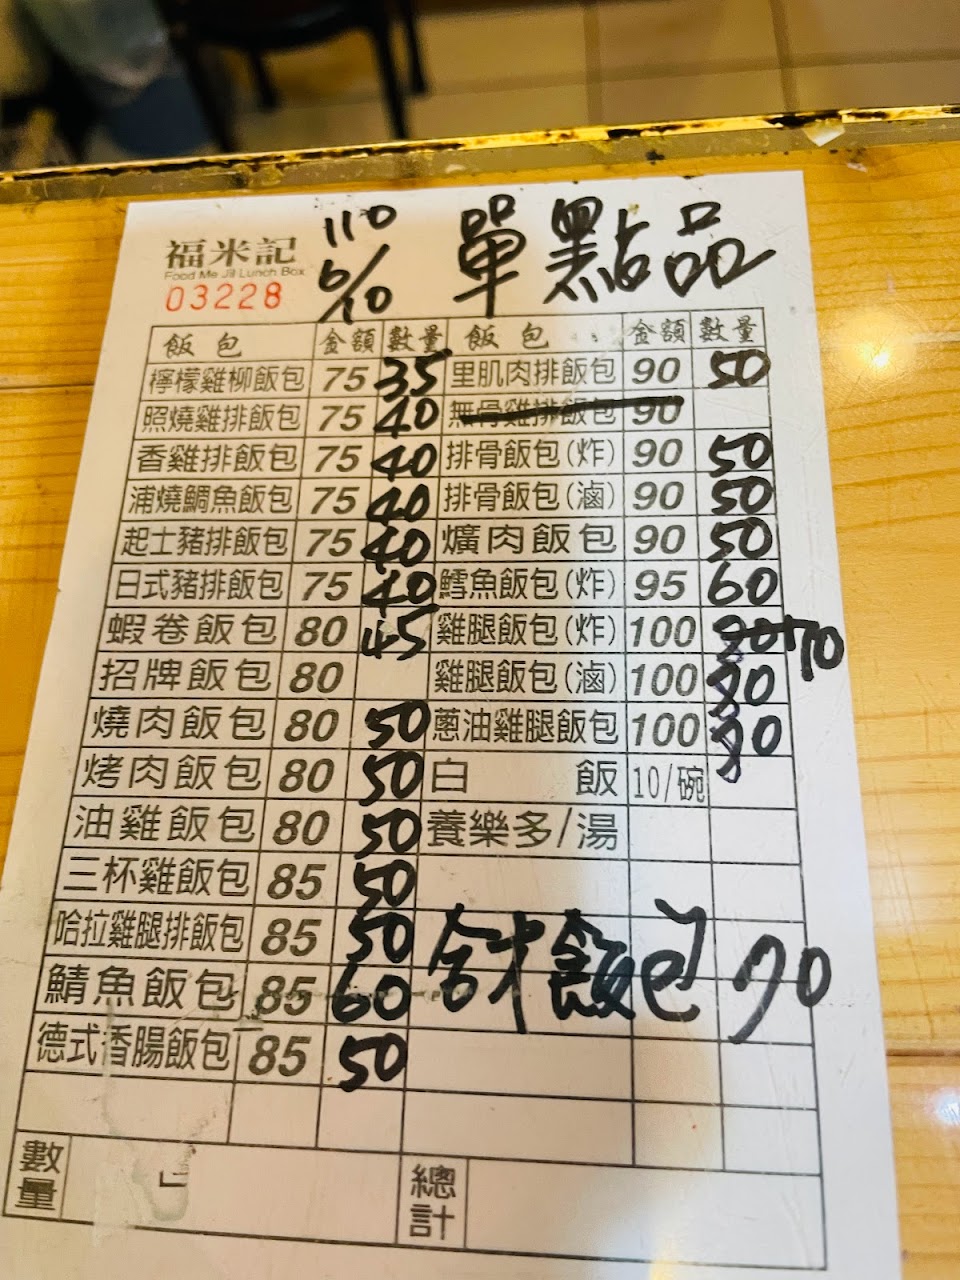 福米記
Food Me Jil Lunch Box
03228
110
6/10
單點品
飯包 金額 數量 飯包 金額 數量
檸檬雞柳飯包 75 35 里肌肉排飯包 90 50
照燒雞排飯包 75 40 無骨雞排飯包 90
香雞排飯包 75 40 排骨飯包(炸) 90 50
浦燒鯛魚飯包 75 40 排骨飯包(滷) 90 50
起士豬排飯包 75 40 爌肉飯包 90 50
日式豬排飯包 75 40 鱈魚飯包(炸) 95 60
蝦卷飯包 80 45 雞腿飯包(炸) 100 70
招牌飯包 80 雞腿飯包(滷) 100 70
燒肉飯包 80 50 蔥油雞腿飯包 100 70
烤肉飯包 80 50 白飯 10/碗
油雞飯包 80 50 養樂多/湯
三杯雞飯包 85 50
哈拉雞腿排飯包 85 50
鯖魚飯包 85 60 飯包 70
德式香腸飯包 85 50
數量 總計